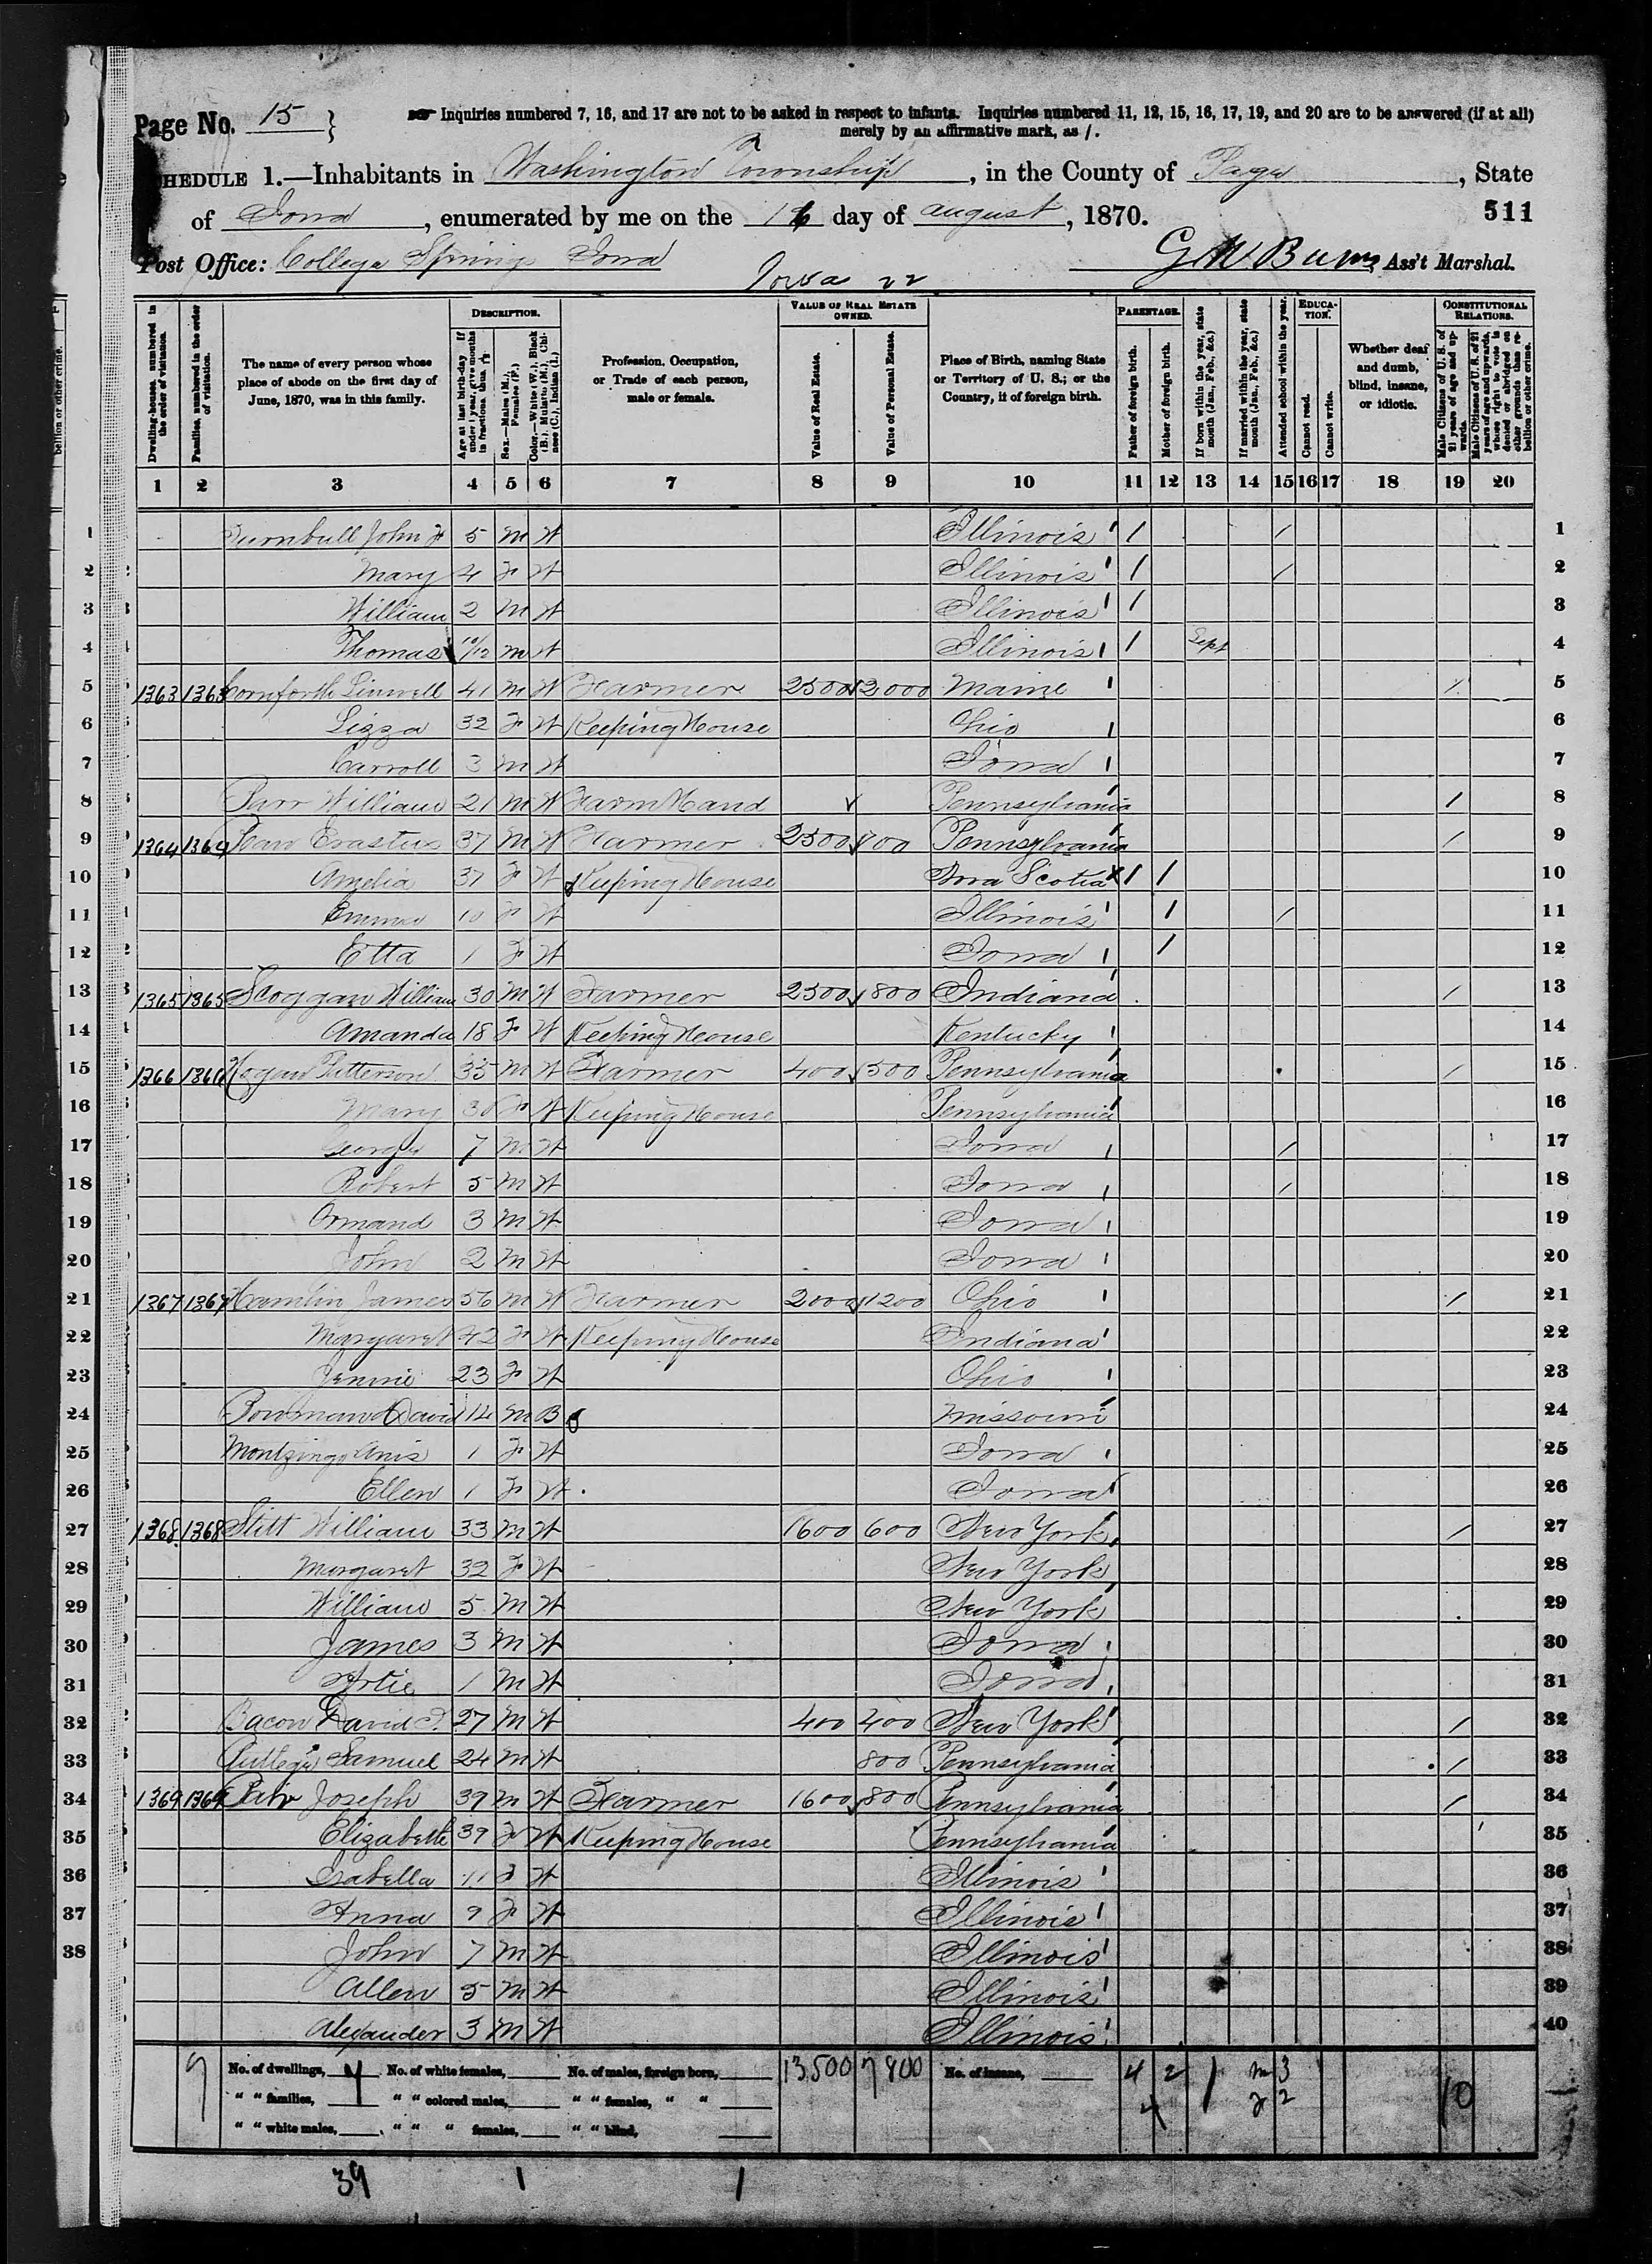 Page No. 15 }
Inquiries numbered 7, 16, and 17 are not to be asked in respect to infants. Inquiries numbered 11, 12, 15, 16, 17, 19, and 20 are to be answered (if at all)
merely by an affirmative mark, as /.
HEDULE 1.—Inhabitants in Washington Township, in the County of Page, State
of Iowa, enumerated by me on the 16 day of August, 1870.
511
Post Office: College Springs Iowa
G W Burns Ass't Marshal.
Iowa 22
Dwelling-houses, numbered in the order of visitation.
Families, numbered in the order of visitation.
The name of every person whose place of abode on the first day of June, 1870, was in this family.
DESCRIPTION.
Age at last birth-day. If under 1 year, give months in fractions, thus
Sex.—Males (M.), Females (F.)
Color.—White (W.), Black (B.), Mulatto (M.), Chinese (C.), Indian (I.)
Profession, Occupation, or Trade of each person, male or female.
VALUE OF REAL ESTATE OWNED.
Value of Real Estate.
Value of Personal Estate.
Place of Birth, naming State or Territory of U. S.; or the Country, if of foreign birth.
PARENTAGE.
Father of foreign birth.
Mother of foreign birth.
If born within the year, state month (Jan., Feb., &c.)
If married within the year, state month (Jan., Feb., &c.)
EDUCATION.
Attended school within the year.
Cannot read.
Cannot write.
Whether deaf and dumb, blind, insane, or idiotic.
CONSTITUTIONAL RELATIONS.
Male Citizens of U. S. of 21 years of age and upwards.
Male Citizens of U. S. of 21 years of age and upwards, whose right to vote is denied or abridged on other grounds than rebellion or other crime.
1 2 3 4 5 6 7 8 9 10 11 12 13 14 15 16 17 18 19 20
1 Turnbull John 5 M W Illinois / / 1
2 Mary 4 F W Illinois / / 2
3 William 2 M W Illinois / 3
4 Thomas 10/12 M W Illinois / Sept 4
5 1363 1363 Cornforth Linwell 41 M W Farmer 2500 2000 Maine / 5
6 Lizza 32 F W Keeping House Ohio 6
7 Carroll 3 M W Iowa 7
8 Parr William 21 M W Farm Hand Pennsylvania / 8
9 1364 1364 Erastus 37 M W Farmer 2500 Pennsylvania / 9
10 Amelia 37 F W Keeping House Nova Scotia / / 10
11 Emma 10 F W Illinois / / 11
12 Etta 1 F W Iowa / 12
13 1365 1365 Scoggan William 30 M W Farmer 2500 800 Indiana / 13
14 Amanda 18 F W Keeping House Kentucky 14
15 1366 1366 Patterson 35 M W Farmer 400 500 Pennsylvania / 15
16 Mary 30 F W Keeping House Pennsylvania 16
17 George 7 M W Iowa / 17
18 Robert 5 M W Iowa / 18
19 Ormand 3 M W Iowa 19
20 John 2 M W Iowa 20
21 1367 1367 Hamlin James 56 M W Farmer 2000 1200 Ohio / 21
22 Margaret 42 F W Keeping House Indiana 22
23 Jennie 23 F W Ohio 23
24 Bowman David 14 M B Missouri 24
25 Montzingo Anis 1 F W Iowa 25
26 Ellen 1 F W Iowa 26
27 1368 1368 Stitt William 33 M W 1600 600 New York / 27
28 Margaret 32 F W New York 28
29 William 5 M W New York 29
30 James 3 M W Iowa 30
31 Artie 1 M W Iowa 31
32 Bacon David 27 M W 400 400 New York / 32
33 Samuel 24 M W 800 Pennsylvania / 33
34 1369 1369 Joseph 39 M W Farmer 1600 800 Pennsylvania / 34
35 Elizabeth 39 F W Keeping House Pennsylvania 35
36 Isabella 11 F W Illinois 36
37 Anna 9 F W Illinois 37
38 John 7 M W Illinois 38
Allen 5 M W Illinois 39
Alexander 3 M W Illinois 40
No. of dwellings, No. of white females, No. of males, foreign born, 13,500 7800 No. of insane, 4 2 1 m 3
" " families, " " colored males, " " females, " " 4 f 2 10
" " white males, " " " females, " " blind,
39 1 1